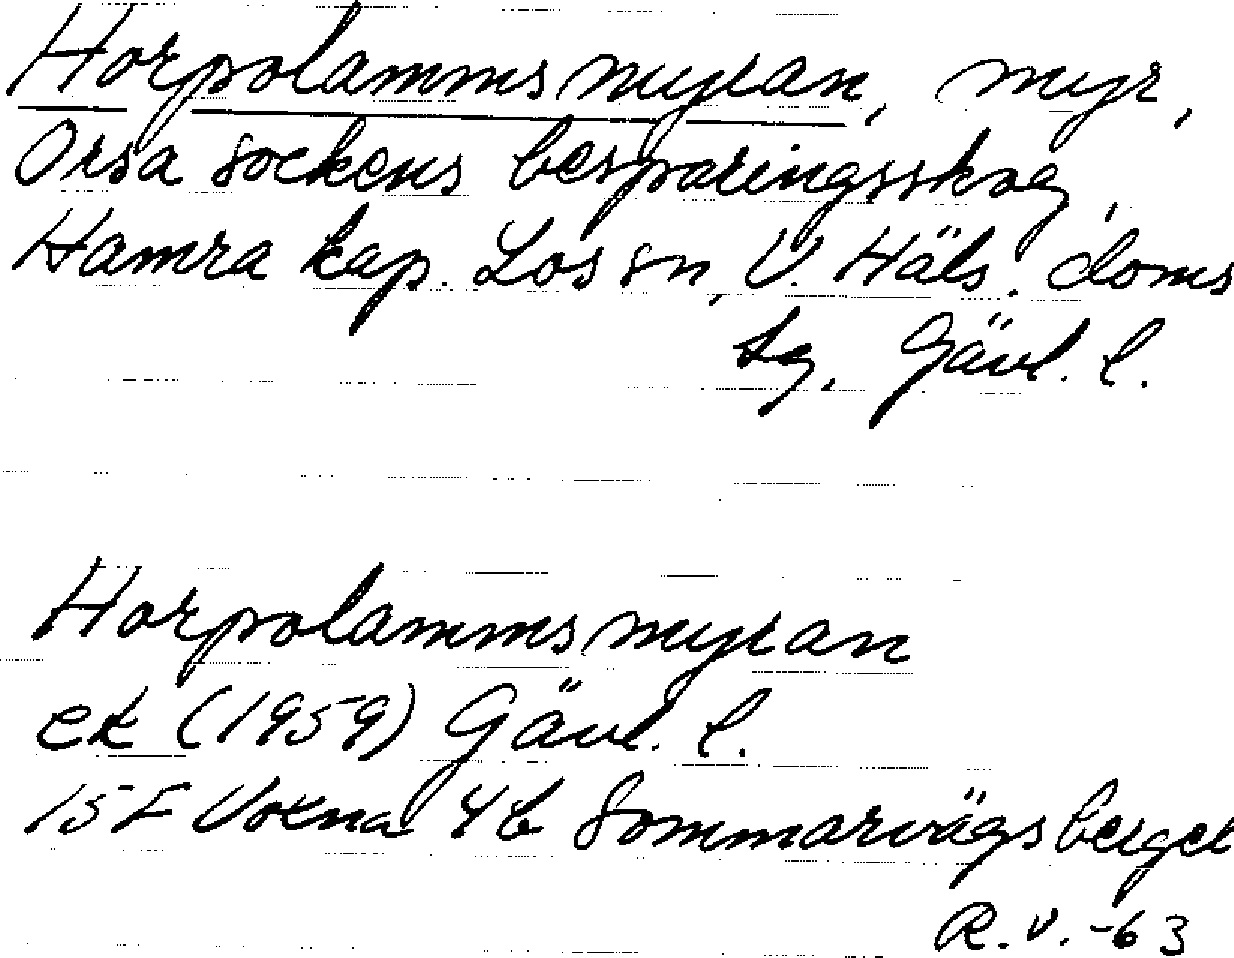 Horpolammsmyran, myr,
Orsa sockens besparingsskog,
Hamra kap. Los sn, V. Häls. doms
sg, Gävl. l.
Horpolammsmyran
ek (1959) Gävl. l.
15 F Voxna 4b Sommarvägsberget
R.V.-63